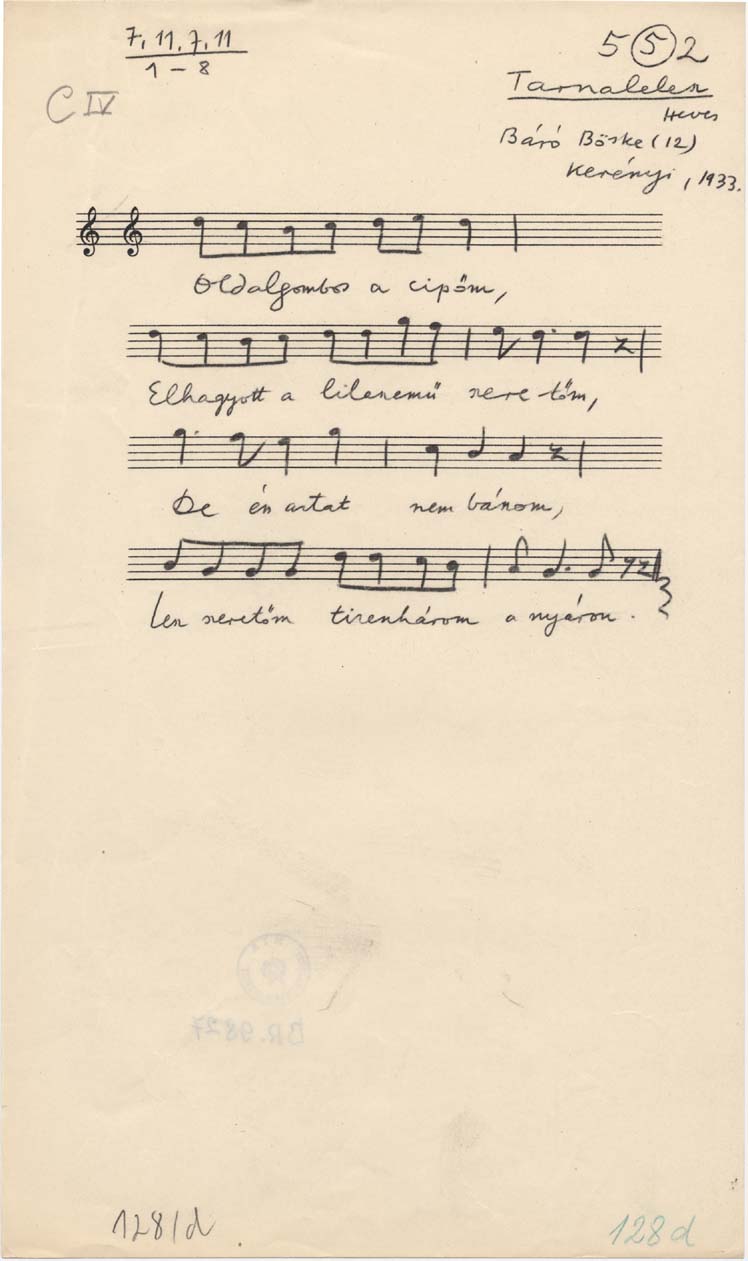 7, 11, 7, 11
1 – 8
C IV
5 5 2
Tarnalelesz
Heves
Báró Böske (12)
Kerényi, 1933.
Oldalgombos a cipőm,
Elhagyott a lilaszemű szere-tőm,
De én aztat nem bánom,
Lesz szeretőm tizenhárom a nyáron.
BR. 9827
128/d
128 d